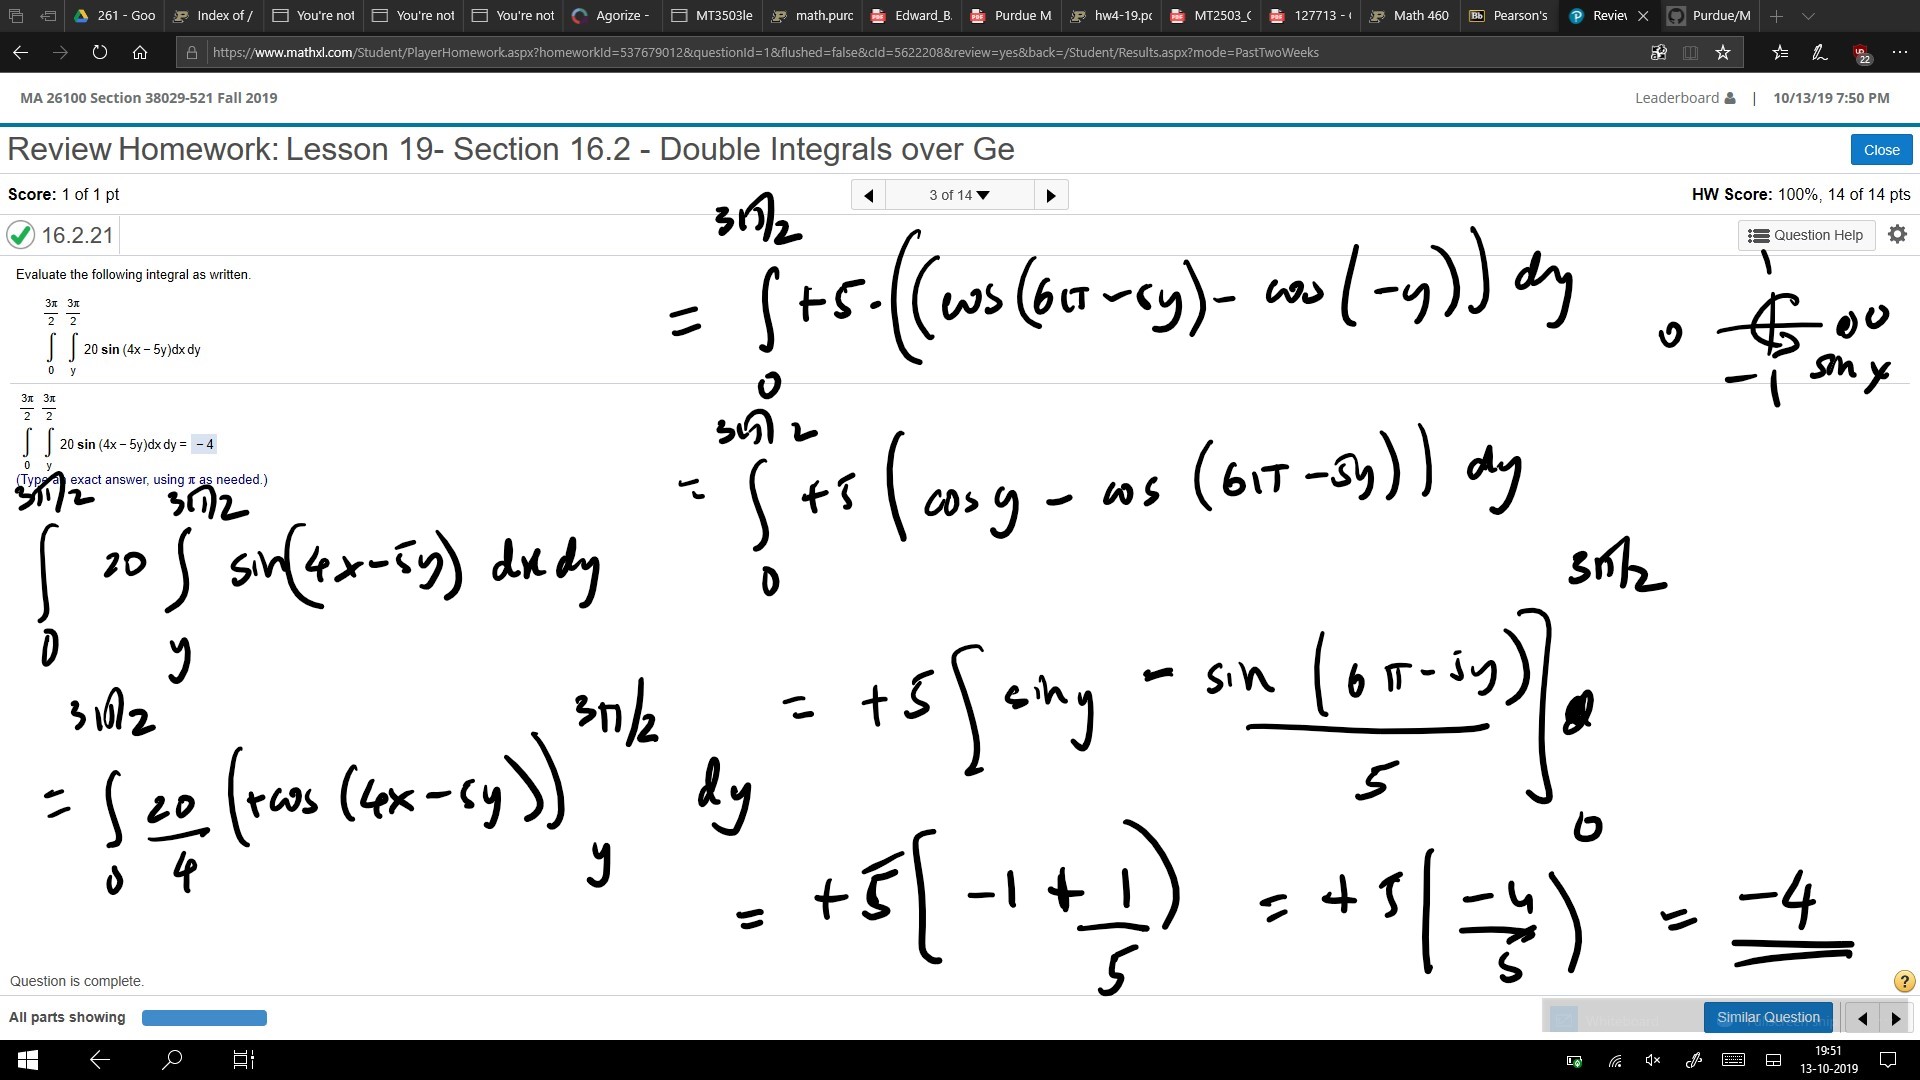 261 - Goo Index of / You're not You're not You're not Agorize - MT3503le math.purc Edward_B. Purdue M hw4-19.pc MT2503_C 127713 - ( Math 460 Pearson's Review Purdue/M
https://www.mathxl.com/Student/PlayerHomework.aspx?homeworkId=537679012&questionId=1&flushed=false&cId=5622208&review=yes&back=/Student/Results.aspx?mode=PastTwoWeeks
22
MA 26100 Section 38029-521 Fall 2019
Leaderboard | 10/13/19 7:50 PM
Review Homework: Lesson 19- Section 16.2 - Double Integrals over Ge
Close
Score: 1 of 1 pt
3 of 14
HW Score: 100%, 14 of 14 pts
16.2.21
Question Help
Evaluate the following integral as written.
3π/2 3π/2
∫ ∫ 20 sin (4x – 5y)dx dy
0 y
3π/2 3π/2
∫ ∫ 20 sin (4x – 5y)dx dy = – 4
0 y
(Type an exact answer, using π as needed.)
3π/2 3π/2
∫ 20 ∫ sin(4x-5y) dx dy
0 y
3π/2 3π/2
= ∫ 20/4 (+cos (4x-5y)) dy
0 y
3π/2
= ∫ +5 · ((cos(6π-5y) - cos(-y)) dy
0
3π/2
= ∫ +5 (cos y - cos (6π-5y)) dy
0
3π/2
= +5 [sin y - sin (6π-5y)/5]
0
= +5 [-1 + 1/5) = +5 (-4/5) = -4
1
0 0
-1 sin x
Question is complete.
All parts showing
Similar Question
?
19:51
13-10-2019